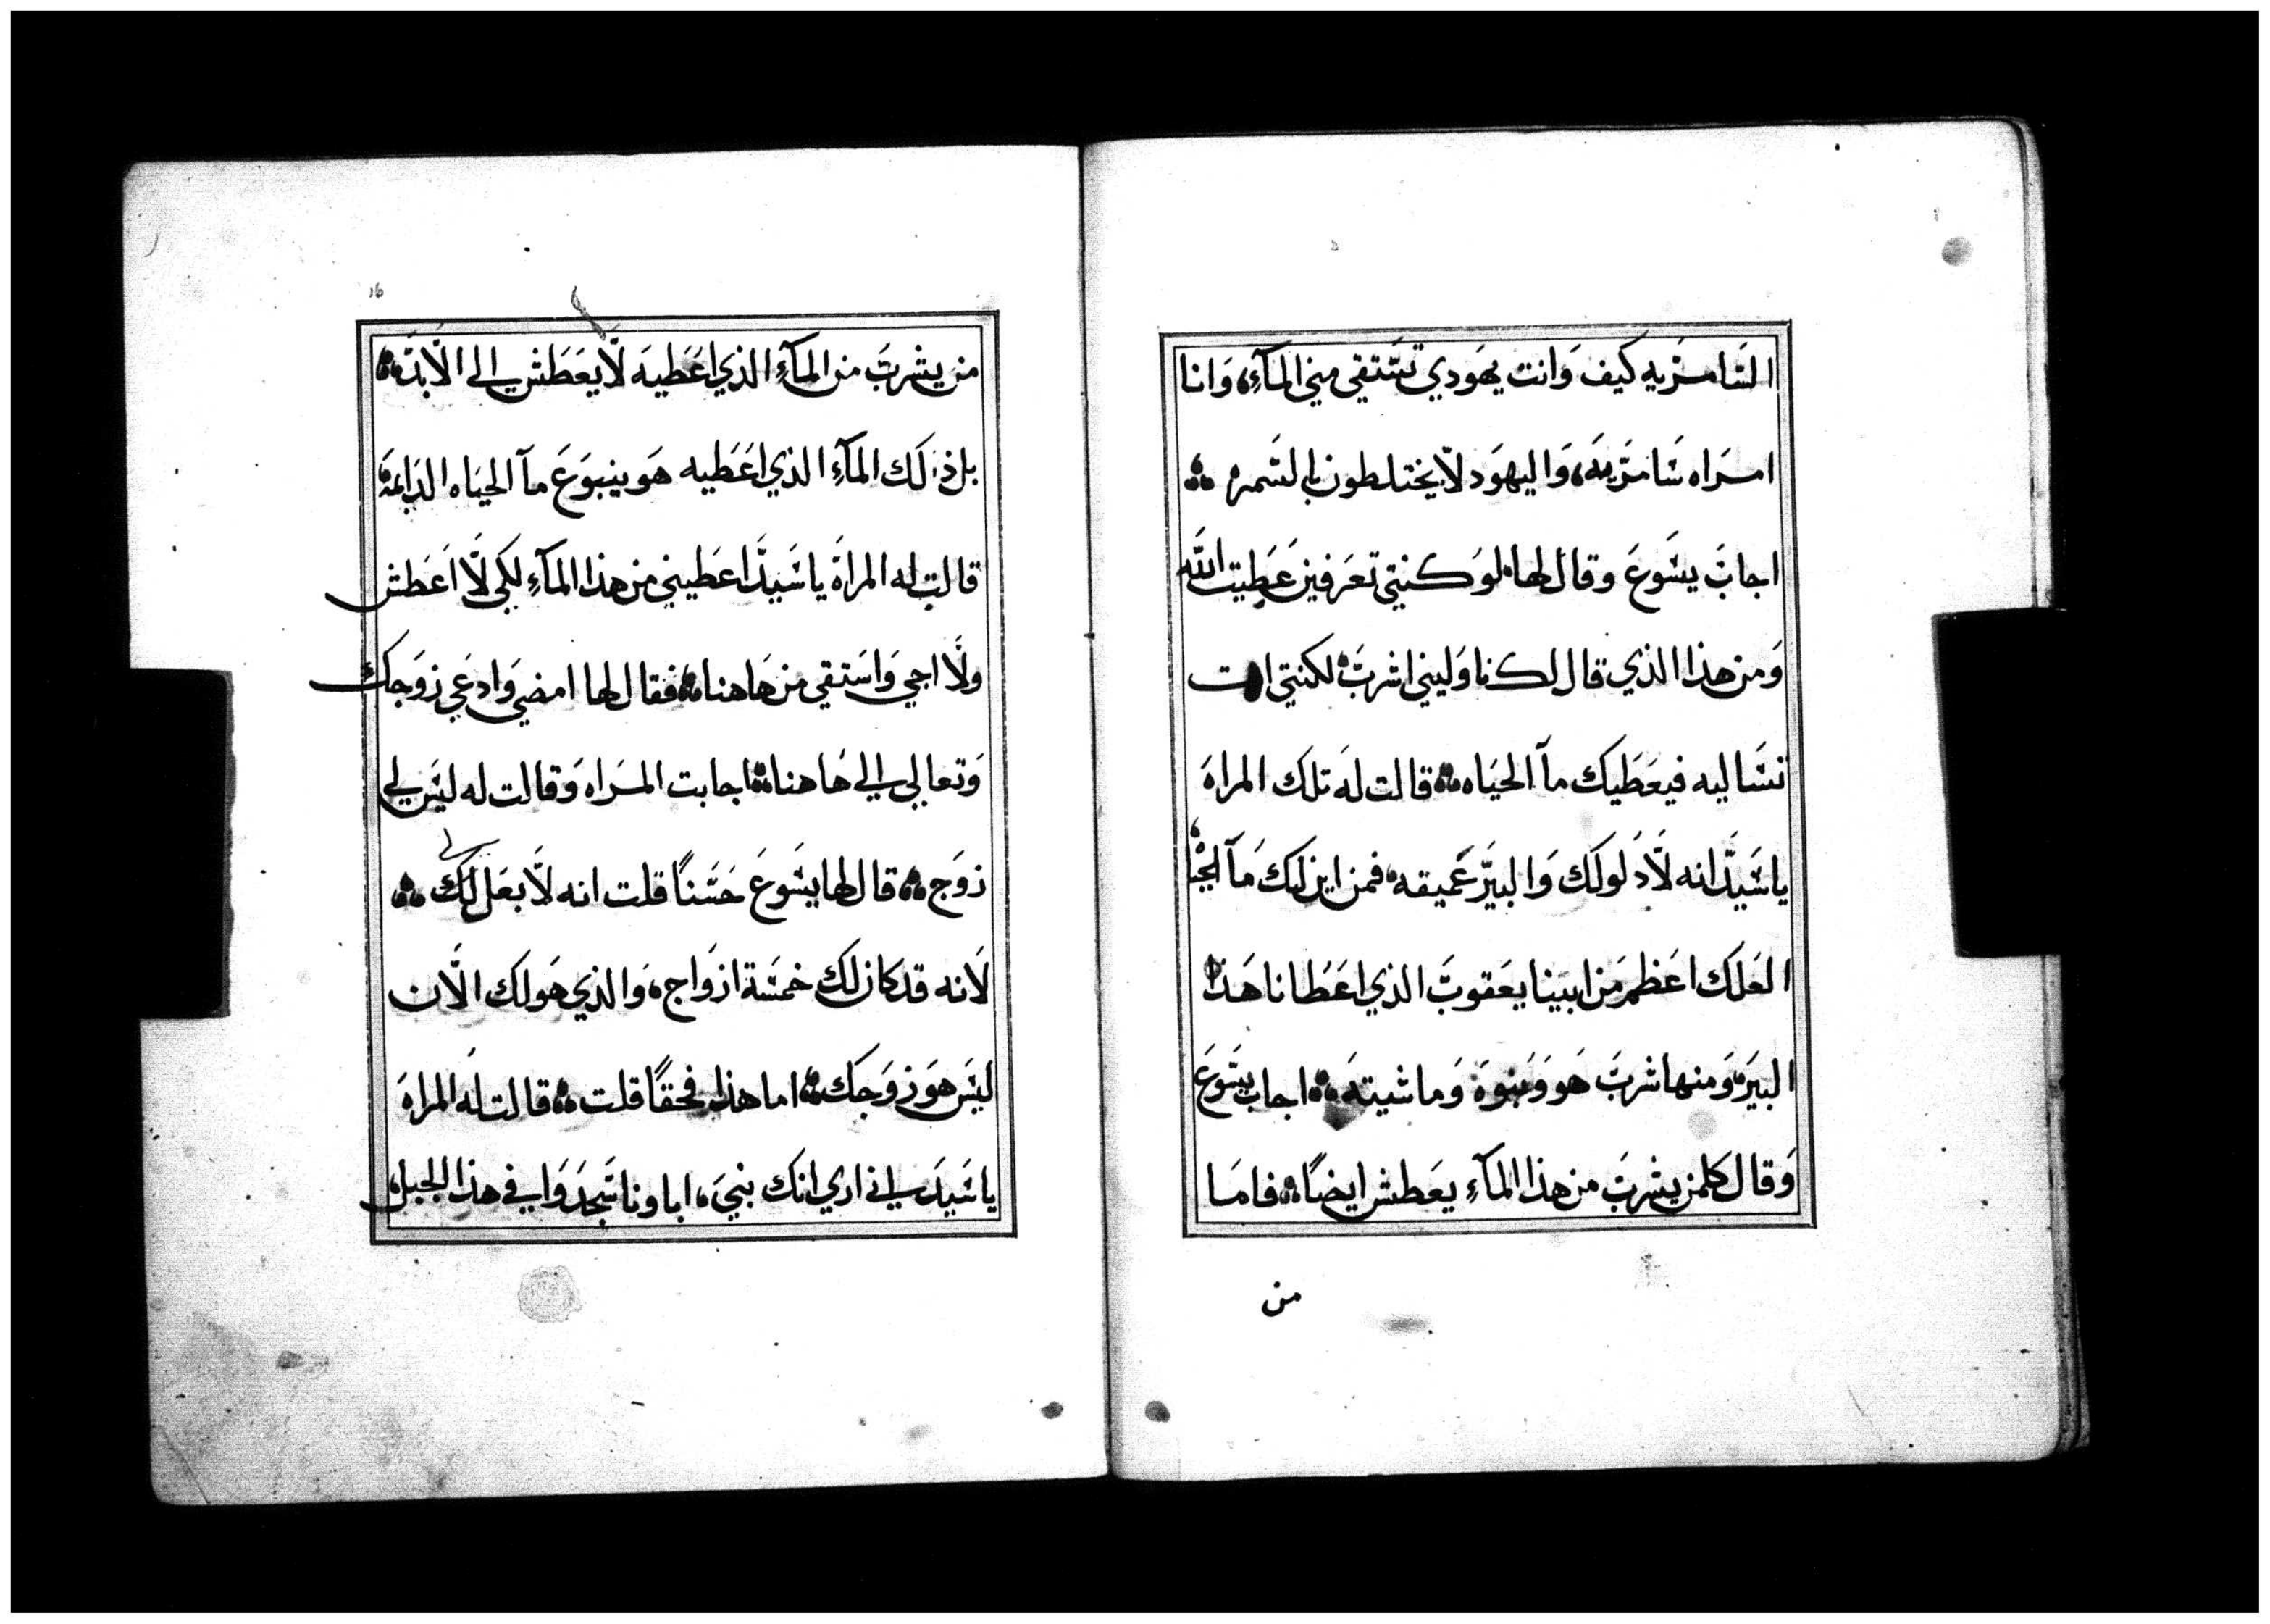 السَامريه كيف وَانت يهَودي تسَتقي مني المآءِ، وَانا
امرَاه سَامرَيهَ، وَاليهَود لاَيختلطون بالسَمره ؞
اجابَ يسَوعَ وقال لها، لوَ كنتي تعَرفين عَطيت الله
وَمن هذا الذي قال لك ناوَليني اشربَ، لكنتي انت
تسَاليه فيعَطيك مآ الحيَاه ؞ قالت لهَ تلك المراهَ
ياسَيدَ انه لاَدَلو لك وَالبيَرَ عَميقه، فمن اين لك مَآ الحيَاه
العَلك اعَظم مَن ابيَنا يعَقوبَ الذي اعَطانا هَذا
البيَر، وَمنها شربَ هَو وَبَنوهَ وَماشيتهَ ؞ اجاب يسَوعَ
وَقال كلمن يشربَ من هذا المآءِ يعَطش ايضاً ؞ فامَا
من
16
من يشربَ من المآءِ الذي اعَطيهَ لاَيعَطش الي الاَبدَ ؞
بل ذلَك المآءِ الذي اعَطيه هَو ينبوَعَ مآ الحيَاه الدَايمهَ
قالت له المراةَ ياسَيدَ اعَطيني من هذا المآءِ لكي لاَ اعَطش
ولاَ اجي وَاسَتقي من هَاهنا ؞ فقال لها امضي وَادعَي زوَجك
وَتعالي الي هَاهنا ؞ اجابت المرَاه وَقالت له ليسَ لي
زوَج ؞ قال لها يسَوعَ حَسَناً قلت انه لاَبعَل لك ؞
لي
لاَنه قد كان لك خمسَة ازوَاج، وَالذي هَو لك الاَن
ليسَ هَو زوَجَك ؞ اما هذا فحقاً قلت ؞ قالت لهَ المراهَ
ياسَيدَ اني اري انك نبيَ، اباونا سَجدَوَا في هذا الجبل،